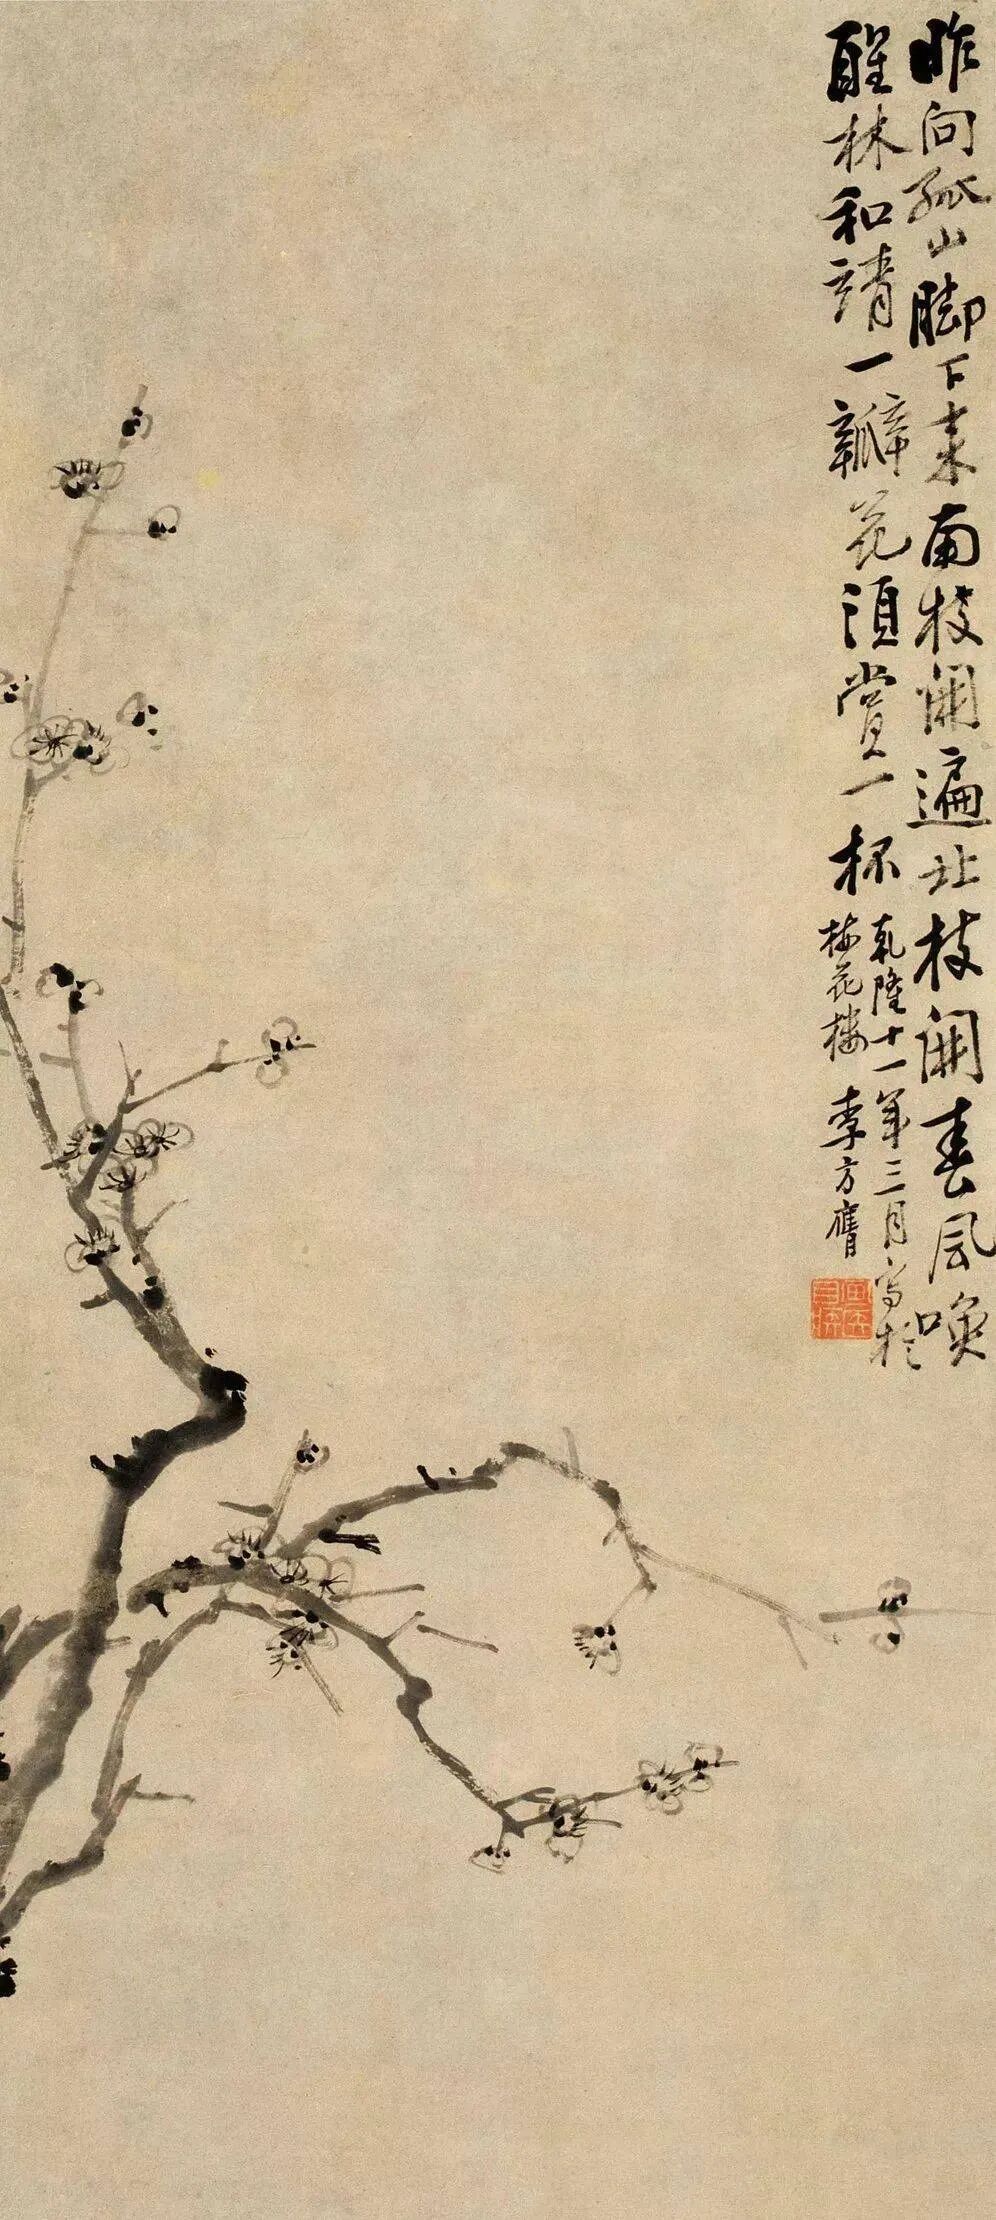 昨向孤山脚下来南枝開遍北枝開春風喚
醒林和靖一瓣花須賞一杯
乾隆十一年三月寫於
梅花樓 李方膺